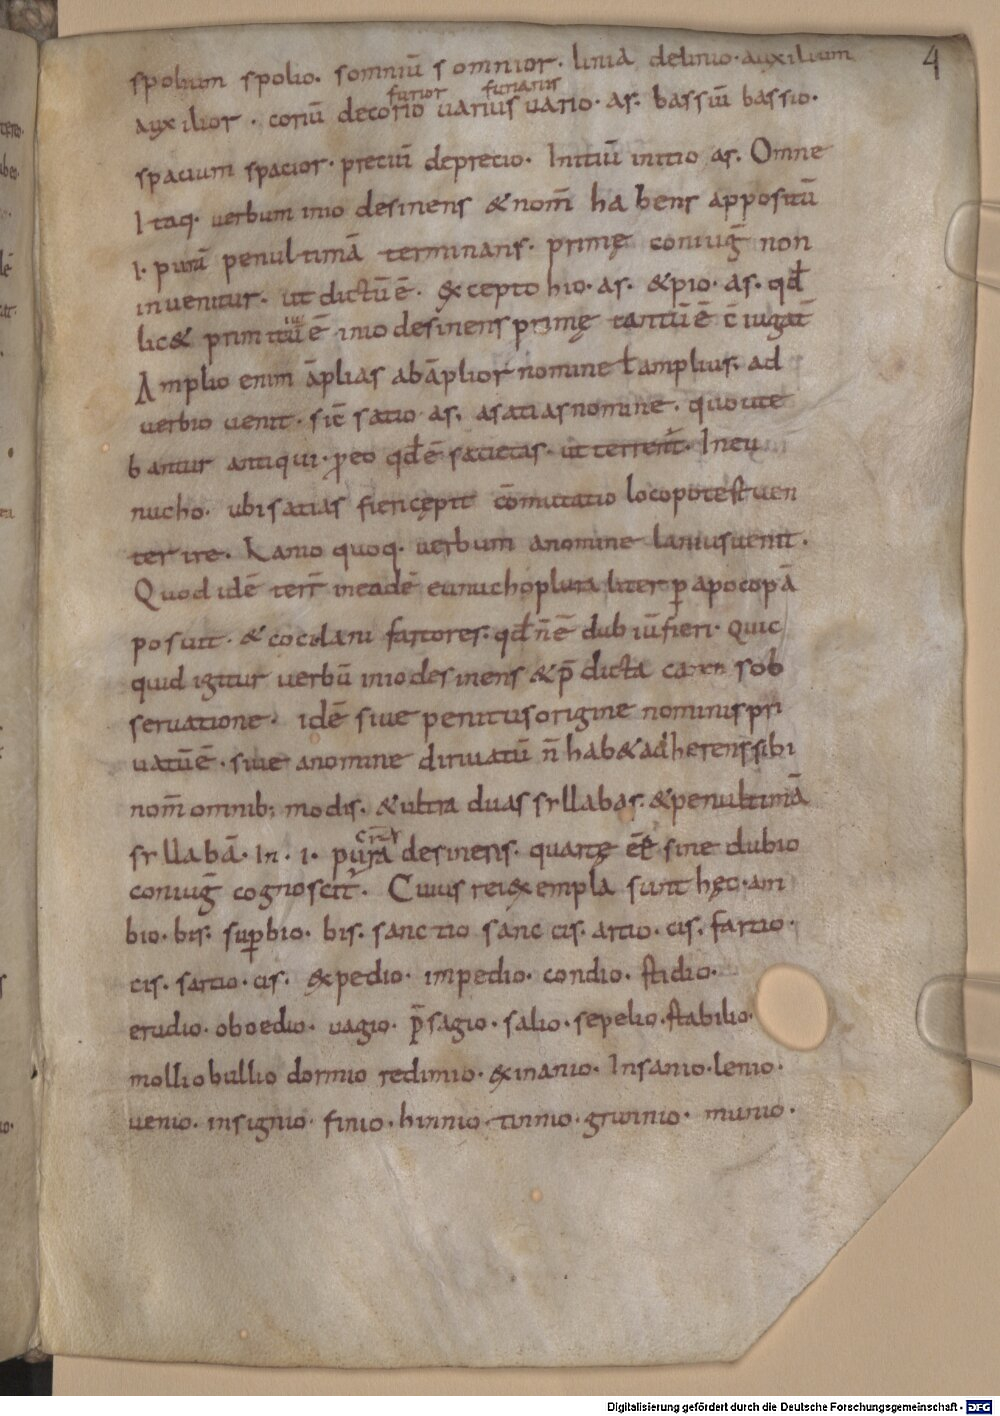 4
spolium spolio. somniū somnior. linia delinio. auxilium
furior furiaris
auxilior. coriū decorio uarius uario. as. bassiū bassio.
spacium spacior. preciū deprecio. Initiū initio as. Omne
Itaq. uerbum inio desinens & nom̄ habens appositū
i. purū penultimā terminans. primę coniug̅ non
inuenitur. ut dictū ē. excepto hio. as. & pio. as. qđ
lic& primitiuū ē inio desinens primę tantū ē c̄iugat̄
Amplio enim āplias ab āplior nomine ł amplius. ad
uerbio uenit. sic̄ satio as. a satias nomine. quo ute
bantur antiqui. p eo qđ ē satietas. ut terrent̄. In eu
nucho. ubi satias fieri cępit cōmutatio loco potest uen
ter ire. Lanio quoq. uerbum a nomine lanius uenit.
Quod idē terr̄ in eadē eunucho pluraliter p apocopā
posuit. & coci lani fartores. qđ n̄ ē dubiū fieri. Quic
quid igitur uerbū inio desinens & p̄dicta caren sob
seruatione. idē siue penitus origine nominis pri
uatū ē. siue a nomine diriuatū n̄ hab& adherens sibi
nom̄ omnib; modis. & ultra duas syllabas. & penultimā
syllabā. In. i. purā desinens. quartę eē sine dubio
coniug̅ cognoscit̄. Cuius rei exempla sunt hęc. am
bio. bis. supbio. bis. sanctio sanccis. artio. cis. fartio.
cis. sartio. cis. expedio. impedio. condio. stidio.
erudio. oboedio. uagio. p̄sagio. salio. sepelio. stabilio.
mollio bullio dormio redimio. exinanio. Insanio. lenio.
uenio. insignio. finio. hinnio. tinnio. grunnio. munio.
Digitalisierung gefördert durch die Deutsche Forschungsgemeinschaft - DFG